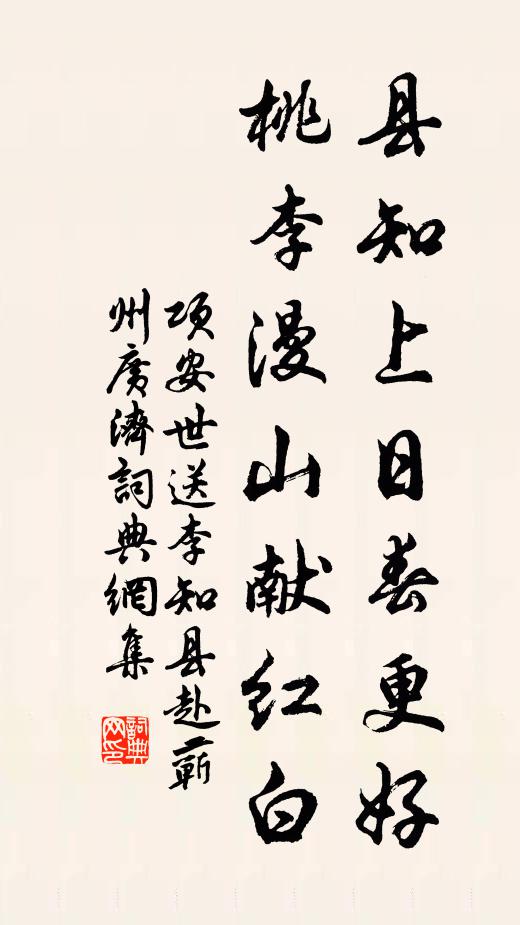 县知上日春更好
桃李漫山献红白
项安世送李知县赴蕲
州廣濟詞典網集
詞典
网印